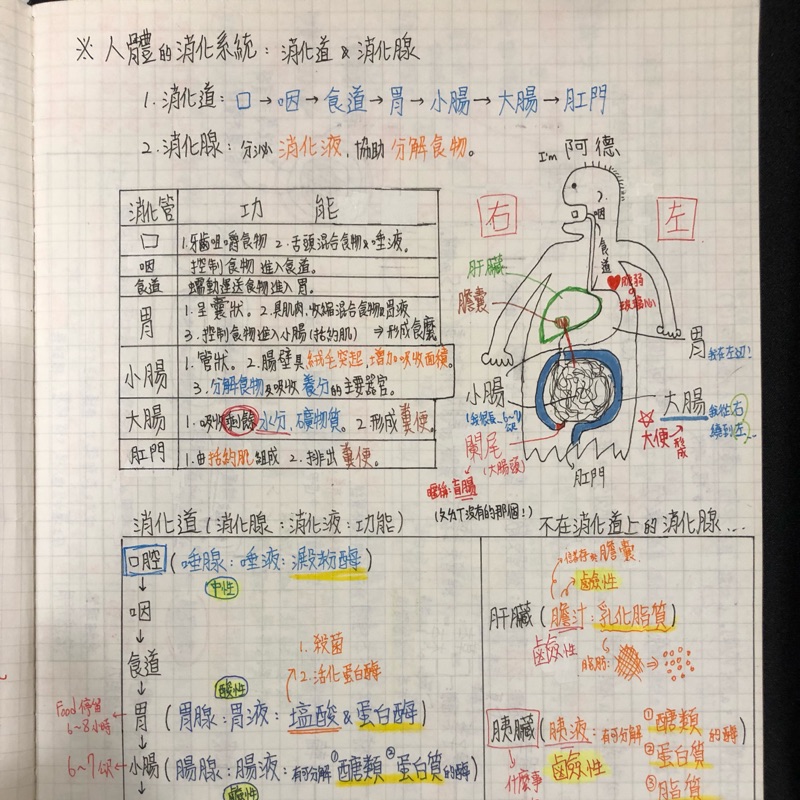 ※ 人體的消化系統：消化道 & 消化腺
1. 消化道：口→咽→食道→胃→小腸→大腸→肛門
2. 消化腺：分泌消化液，協助分解食物。
消化管 功能
口 1.牙齒咀嚼食物 2.舌頭混合食物&唾液。
咽 控制食物進入食道。
食道 蠕動運送食物進入胃。
胃 1.呈囊狀。2.具肌肉，收縮混合食物&胃液
3.控制食物進入小腸(括約肌) ⇒形成食糜
小腸 1.管狀。2.腸壁具絨毛突起，增加吸收面積。
3.分解食物&吸收養分的主要器官。
大腸 1.吸收剩餘水分、礦物質。2.形成糞便。
肛門 1.由括約肌組成 2.排出糞便。
I'm 阿德
右
左
咽
食道
肝臟
膽囊
胃
我在左邊!
小腸
大腸
大便
形成
闌尾
(大腸頭)
俗稱：盲腸
肛門
消化道(消化腺：消化液：功能)
口腔(唾腺：唾液：澱粉酶)
中性
↓
咽
↓
食道
1.殺菌
2.活化蛋白酶
↓
酸性
Food停留
6~8小時
胃(胃腺：胃液：塩酸&蛋白酶)
↓
6~7公尺
小腸(腸腺：腸液：有可分解①醣類②蛋白質的酶)
鹼性
↓
不在消化道上的消化腺...
儲存於膽囊
鹼性
肝臟(膽汁：乳化脂質)
鹼性
脂肪：
胰臟(胰液：有可分解①醣類
②蛋白質
③脂質
的酶)
鹼性
什麼事